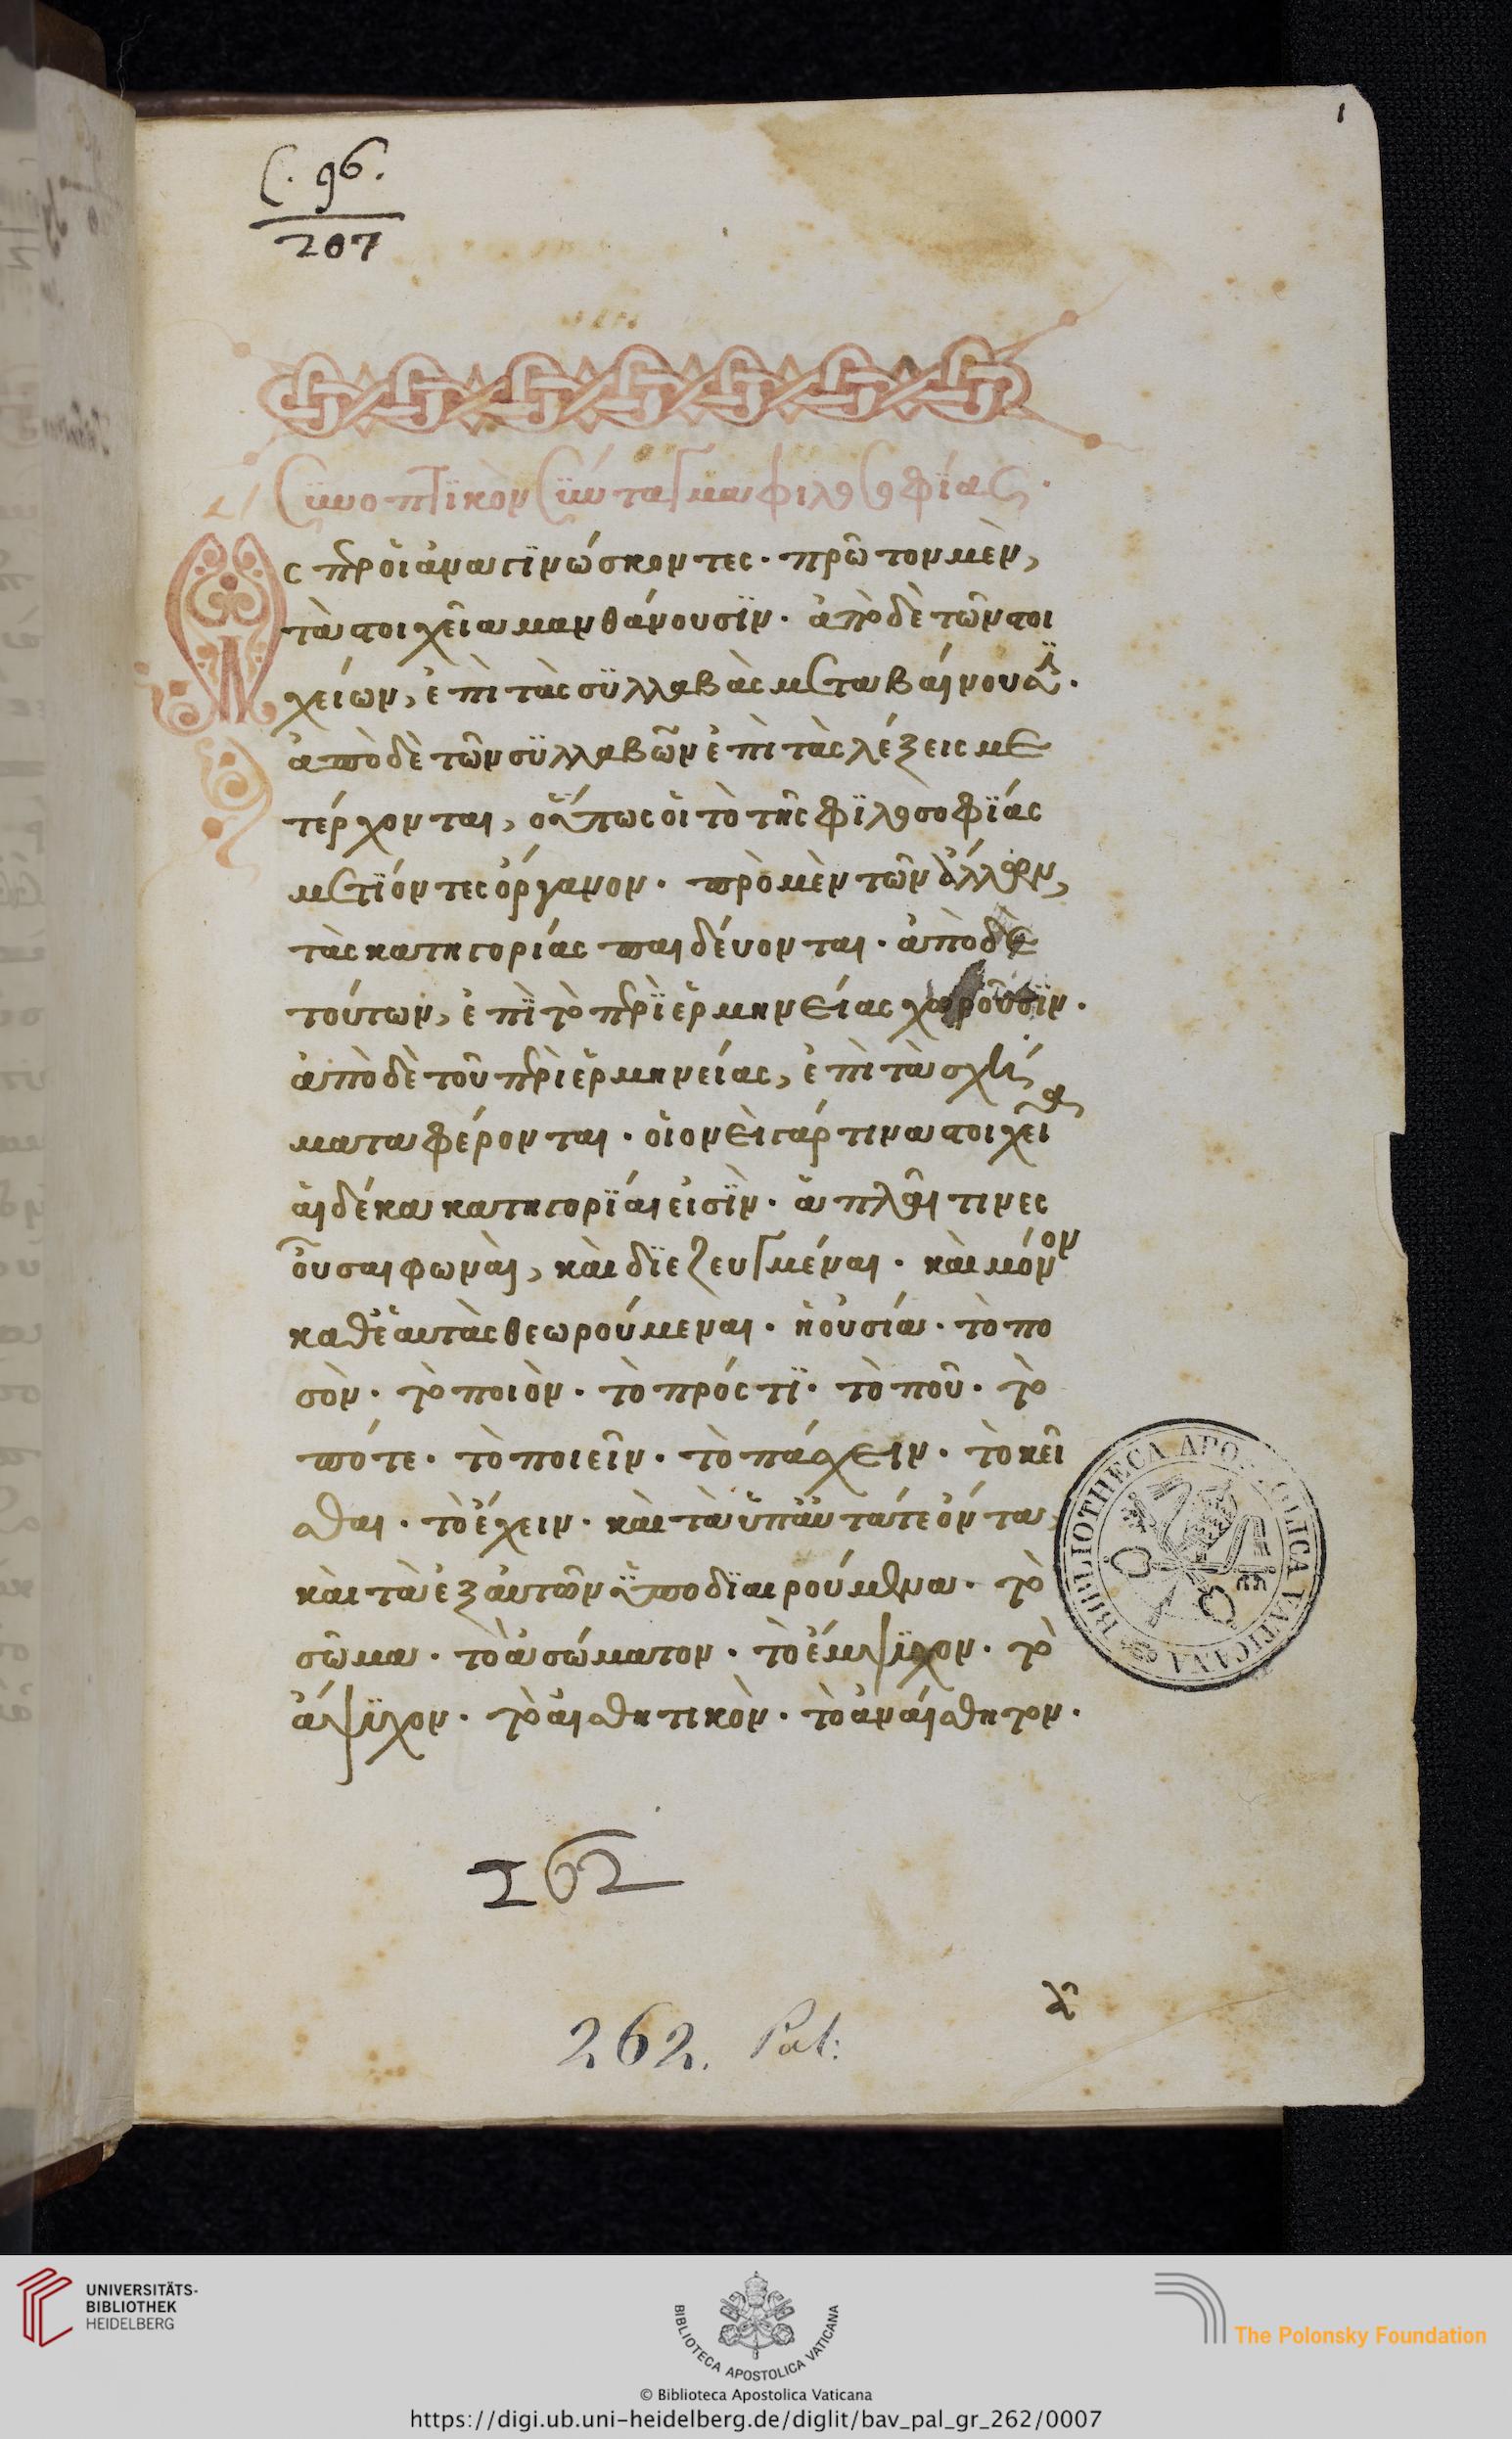 1
C. 96.
207
Συνοπτϊκὸν σύνταγμα φιλοσοφΐας·
Ὥσπερ οἱ ἀναγϊνώσκοντες· πρῶτον μὲν,
τὰ στοιχεῖα μανθάνουσϊν· ἀπὸ δὲ τῶν στοι
χείων, ἐπὶ τὰς σϋλλαβὰς μεταβαίνουσϊν·
ἀπὸ δὲ τῶν σϋλλαβῶν ἐπὶ τὰς λέξεις με
τέρχονται, οὕτως οἱ τὸ τῆς φϊλοσοφΐας
μετϊόντες ὄργανον· πρὸ μὲν τῶν ἄλλων,
τὰς κατηγορίας παιδεύονται· ἀπὸ δὲ
τούτων, ἐπῒ τὸ περῒ ἑρμηνείας χωροῦσϊν·
ἀπὸ δὲ τοῦ περὶ ἑρμηνείας, ἐπὶ τὰ σχή
ματα φέρονται· οἱονεὶ γάρ τινα στοιχεῖα
αἱ δέκα κατηγορΐαι εἰσῒν· ἁπλαῖ τινες
οὖσαι φωναὶ, καὶ δϊεζευγμέναι· καὶ μόνον
καθ' ἑαυτὰς θεωρούμεναι· ἡ οὐσία· τὸ πο
σὸν· τὸ ποιὸν· τὸ πρός τϊ· τὸ ποῦ· τὸ
πότε· τὸ ποιεῖν· τὸ πάσχειν· τὸ κεῖ
σθαι· τὸ ἔχειν· καὶ τὰ ὑπ' αὐτά τε ὄντα,
καὶ τὰ ἐξ αὐτῶν ὑποδϊαιρούμενα· τὸ
σῶμα· τὸ ἀσώματον· τὸ ἔμψϋχον· τὸ
ἄψϋχον· τὸ αἰσθητικὸν· τὸ ἀναίσθητον·
BIBLIOTHECA APOSTOLICA VATICANA
262
262. Pal:
UNIVERSITÄTS-
BIBLIOTHEK
HEIDELBERG
BIBLIOTECA APOSTOLICA VATICANA
The Polonsky Foundation
© Biblioteca Apostolica Vaticana
https://digi.ub.uni-heidelberg.de/diglit/bav_pal_gr_262/0007